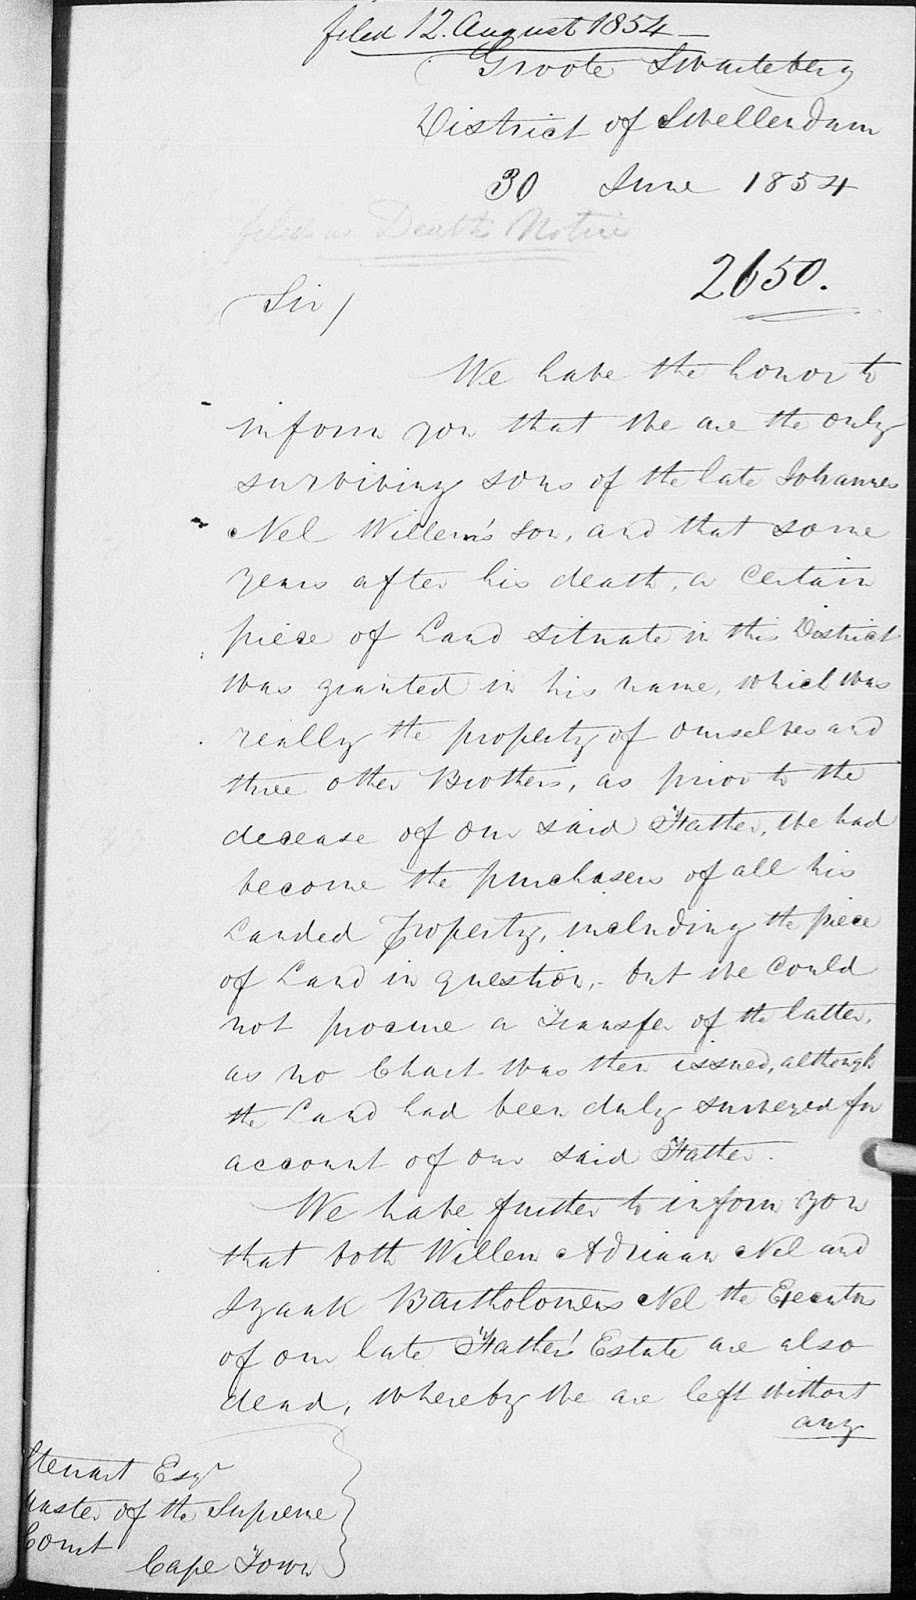 filed 12. August 1854
Groote Swarteberg
District of Swellendam
30 June 1854
filed as Death Notice
2650.
Sir /
We have the honor to
inform you that we are the only
surviving sons of the late Johannes
Nel Willem's Son, and that some
years after his death, a certain
piece of Land situate in this District
was granted in his name, which was
really the property of ourselves and
three other Brothers, as prior to the
decease of our said Father, we had
become the purchasers of all his
Landed Property, including the piece
of Land in question, but we could
not procure a Transfer of the latter,
as no Chart was then issued, although
the Land had been duly surveyed for
account of our said Father.
We have further to inform you
that both Willem Adriaan Nel and
Izaak Bartholomeus Nel the Executors
of our late Father's Estate are also
dead, whereby we are left without
any
Steuart Esqr
Master of the Supreme
Court
Cape Town